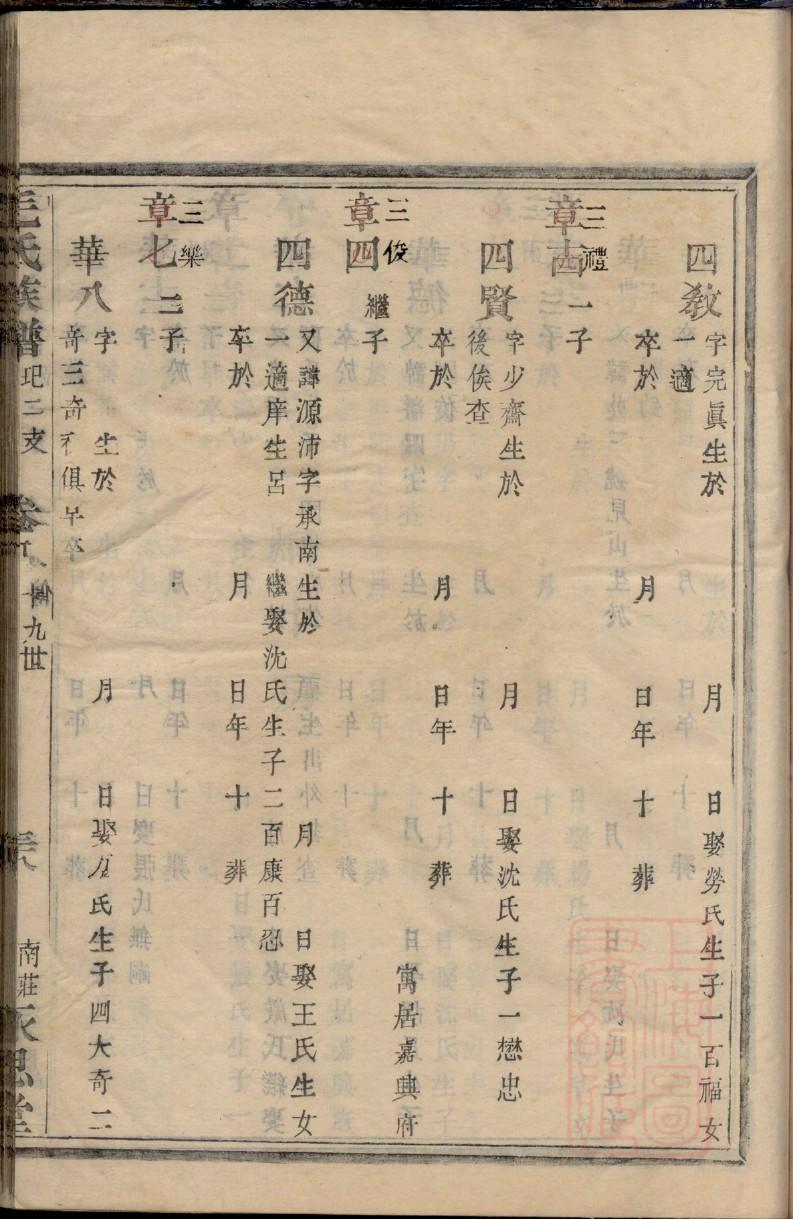 四教 字完眞生於 月 日娶勞氏生子一百福女
一適
卒於 月 日年 十 葬
三禮
章 一子
四賢 字少齋生於 月 日娶沈氏生子一懋忠
後俟查
卒於 月 日年 十 葬
寓居嘉興府
三俊
章四 繼子
四德 又諱源沛字承南生於 月 日娶王氏生女
一適庠生呂 繼娶沈氏生子二百康百忍
卒於 月 日年 十 葬
三樂
章七 二子
華八 字 生於 月 日娶 氏生子四大奇二
奇三奇 俱早卒
毛氏族譜 二支 卷 十九世 南莊永思堂